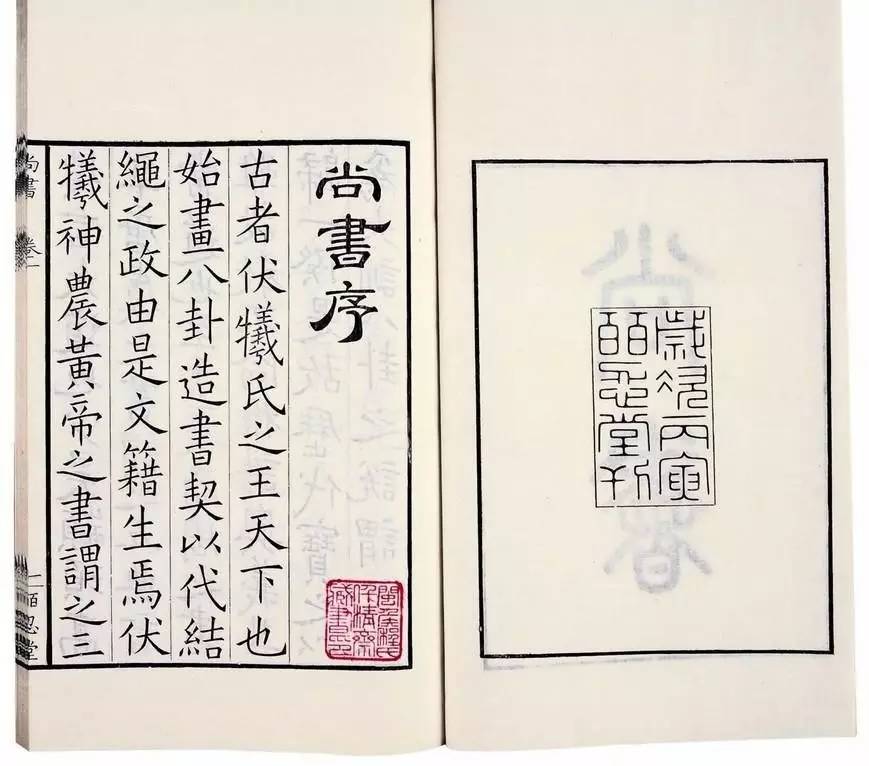 歲次丙寅
皕忍堂刊
尚書序
古者伏犧氏之王天下也
始畫八卦造書契以代結
繩之政由是文籍生焉伏
犧神農黃帝之書謂之三
尚書 卷一 一 皕忍堂